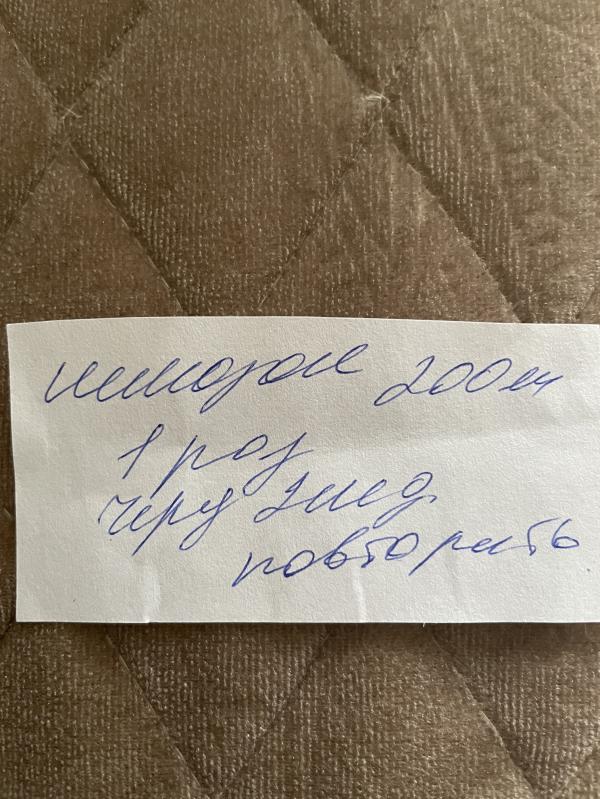 немозол 200 мг
1 раз
через 2 нед.
повторить